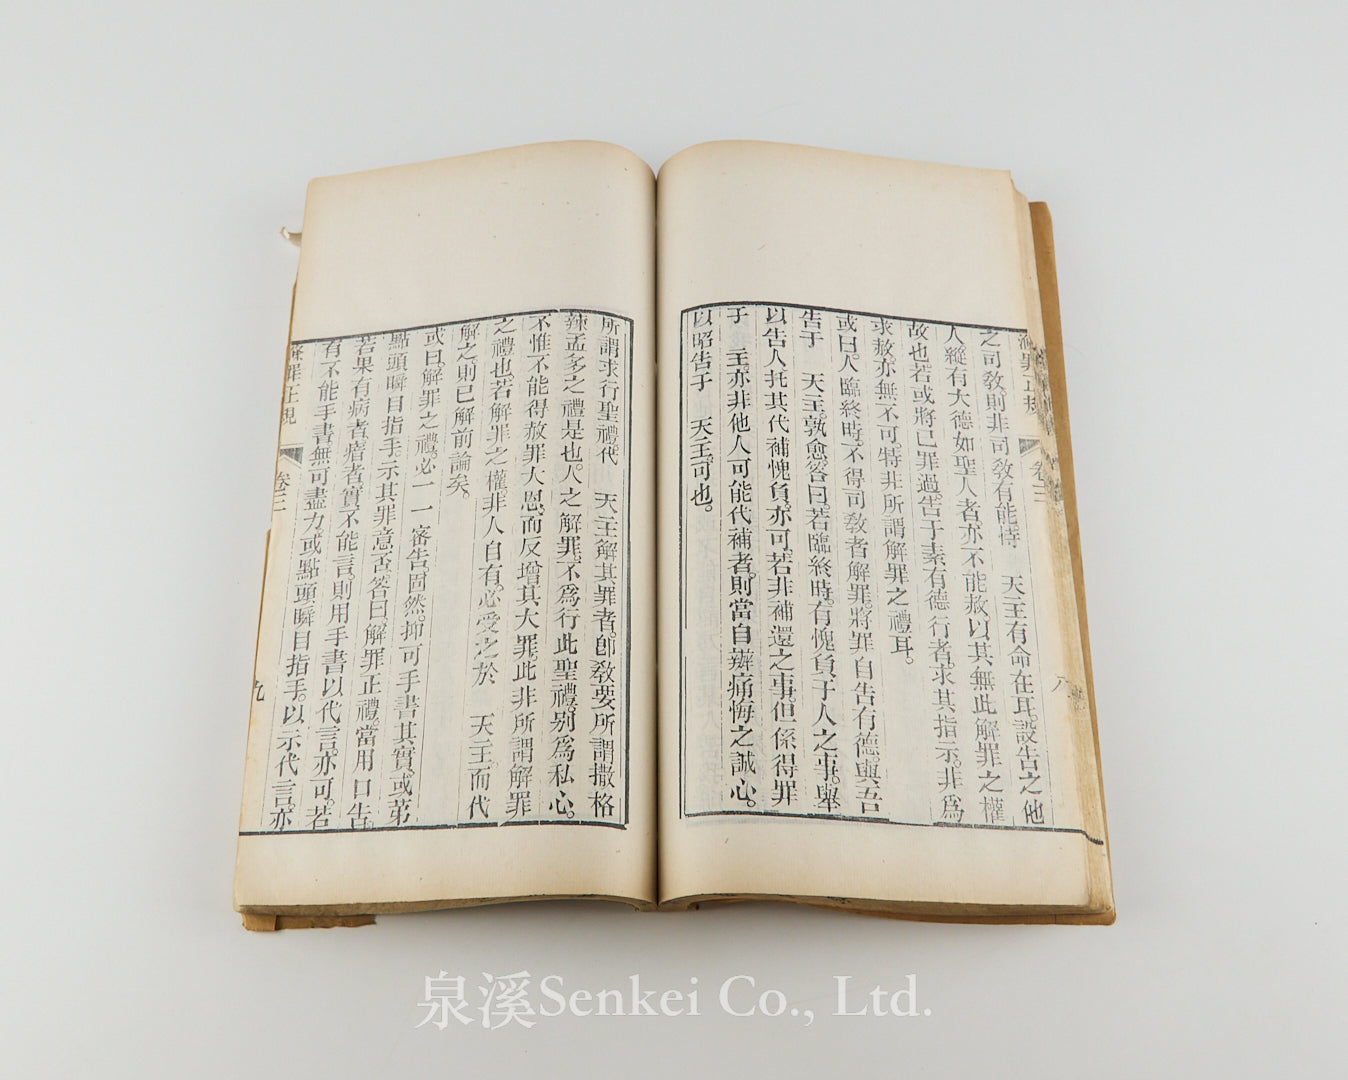 之司教則非司教有能恃　天主有命在耳。設告之他
人縱有大德如聖人者。亦不能赦。以其無此解罪之權
故也。若或將己罪過。告于素有德行者。求其指示。非為
求赦。亦無不可。特非所謂解罪之禮耳。
或曰。人臨終時。不得司教者解罪。將罪自告有德。與吾
告于　天主。孰愈。答曰。若臨終時。有愧負于人之事。舉
以告人。托其代補愧負。亦可。若非補還之事。但係得罪
于　主。亦非他人可能代補者。則當自辦痛悔之誠心。
以昭告于　天主。可也。
卷三
八
所謂求行聖禮。代　天主解其罪者。卽教要所謂撒格
辣孟多之禮是也。人之解罪。不為行此聖禮。别為私心。
不惟不能得赦罪大恩。而反增其大罪。此非所謂解罪
之禮也。若解罪之權。非人自有。必受之於　天主。而代
解之。則已解前論矣。
或曰。解罪之禮。必一一審告固然。抑可手書其實。或第
點頭瞬目指手。示其罪意否。答曰。解罪正禮。當用口告。
若果有病者瘖者。實不能言。則用手書以代言。亦可。若
有不能手書。無可盡力。或點頭瞬目指手。以示代言。亦
滌罪正規
卷三
九
泉溪Senkei Co., Ltd.